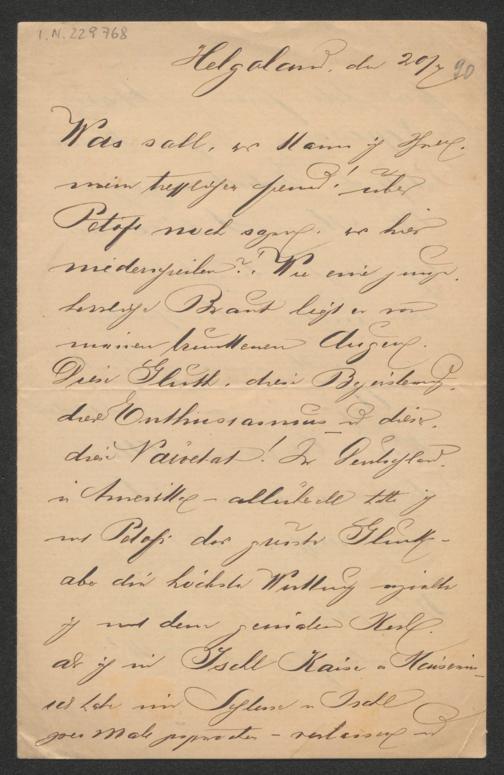 I.N. 229768
Helgoland, den 20/7 90
Was soll, was kann ich Ihnen,
mein trefflicher Freund! über
Petofi noch sagen, was hier
niederschreiben?! Wie eine junge,
herrliche Braut liegt er vor
meinen trunkenen Augen.
Diese Gluth, diese Begeisterung,
dieser Enthusiasmus und diese,
diese Naivetat! In Deutschland,
in Amerika – allüberall hatte ich
mit Petofi das grösste Glück –
aber die höchste Wirkung erzielte
ich mit dem genialen Kerl,
als ich in Ischl Kaiser u Kaiserin
ich habe in
zwei Male gesprochen – und